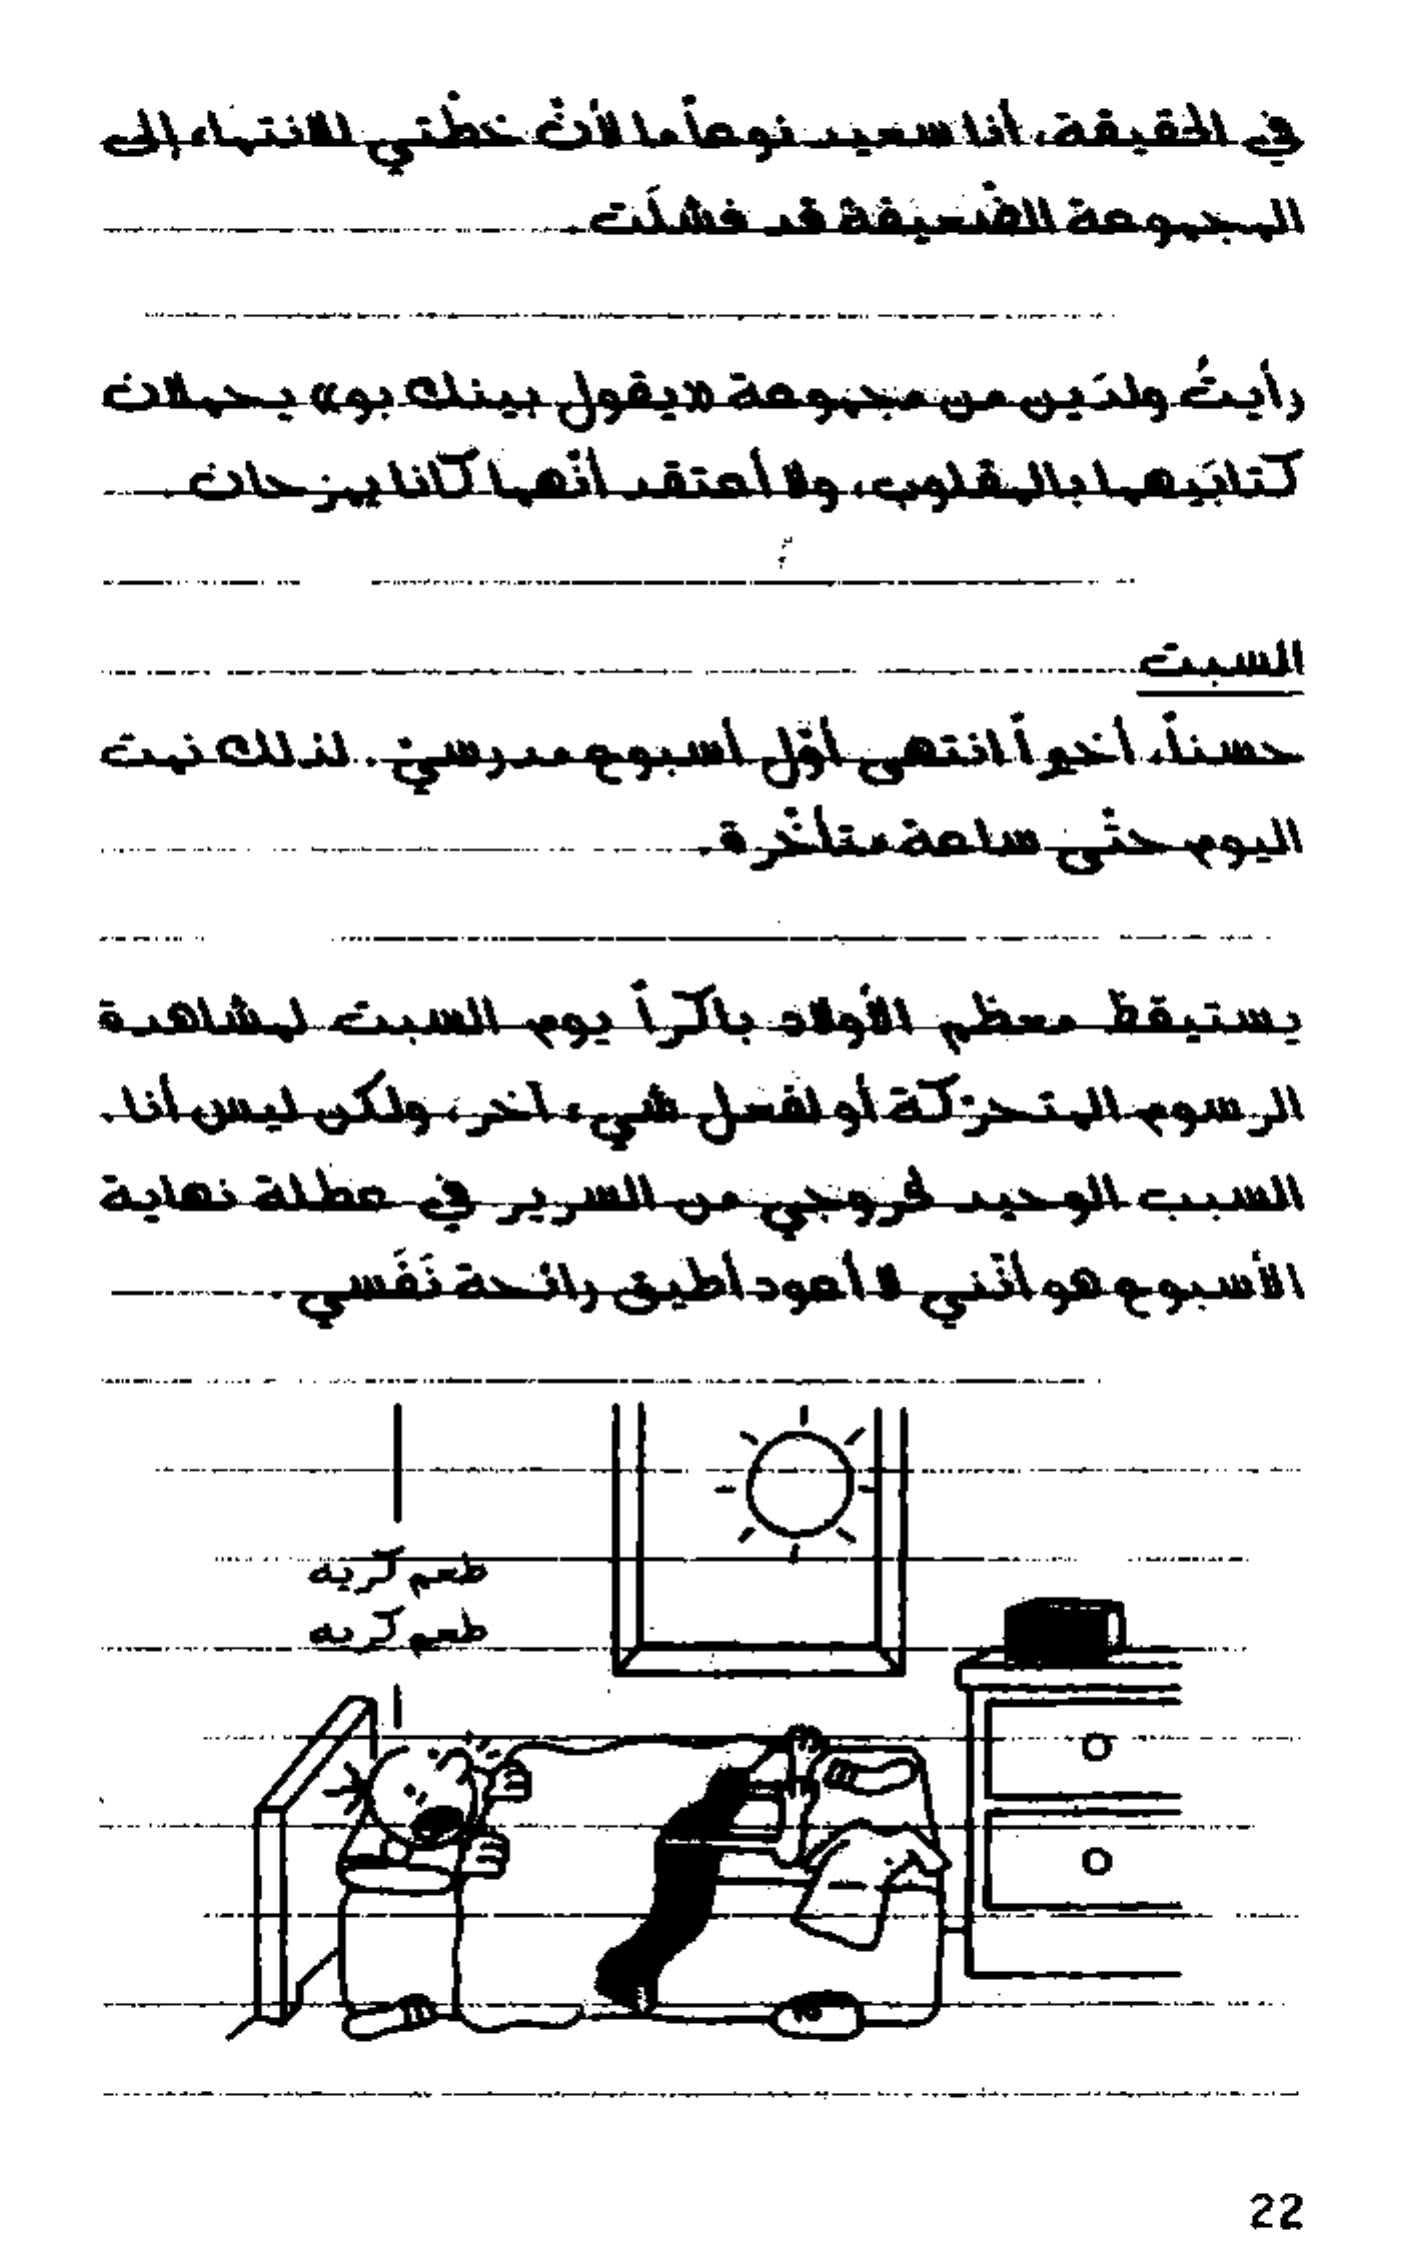 في الحقيقة، أنا سعيد نوعاً ما لأنّ خطّتي للانتهاء إلى
المجموعة الضعيفة قد فشلَت.
رأيتُ ولدَين من مجموعة «يقول بينك بو» يحملان
كتابَيهما بالمقلوب، ولا أعتقد أنّهما كانا يمزحان.
السبت
حسناً، أخيراً انتهى أوّل أسبوع مدرسيّ. لذلك نمت
اليوم حتّى ساعة متأخّرة.
يستيقظ معظم الأولاد باكراً يوم السبت لمشاهدة
الرسوم المتحرّكة أو لفعل شيء آخر، ولكن ليس أنا.
السبب الوحيد لخروجي من السرير في عطلة نهاية
الأسبوع هو أنّني لا أعود أطيق رائحة نَفَسي.
طعم كريه
طعم كريه
22